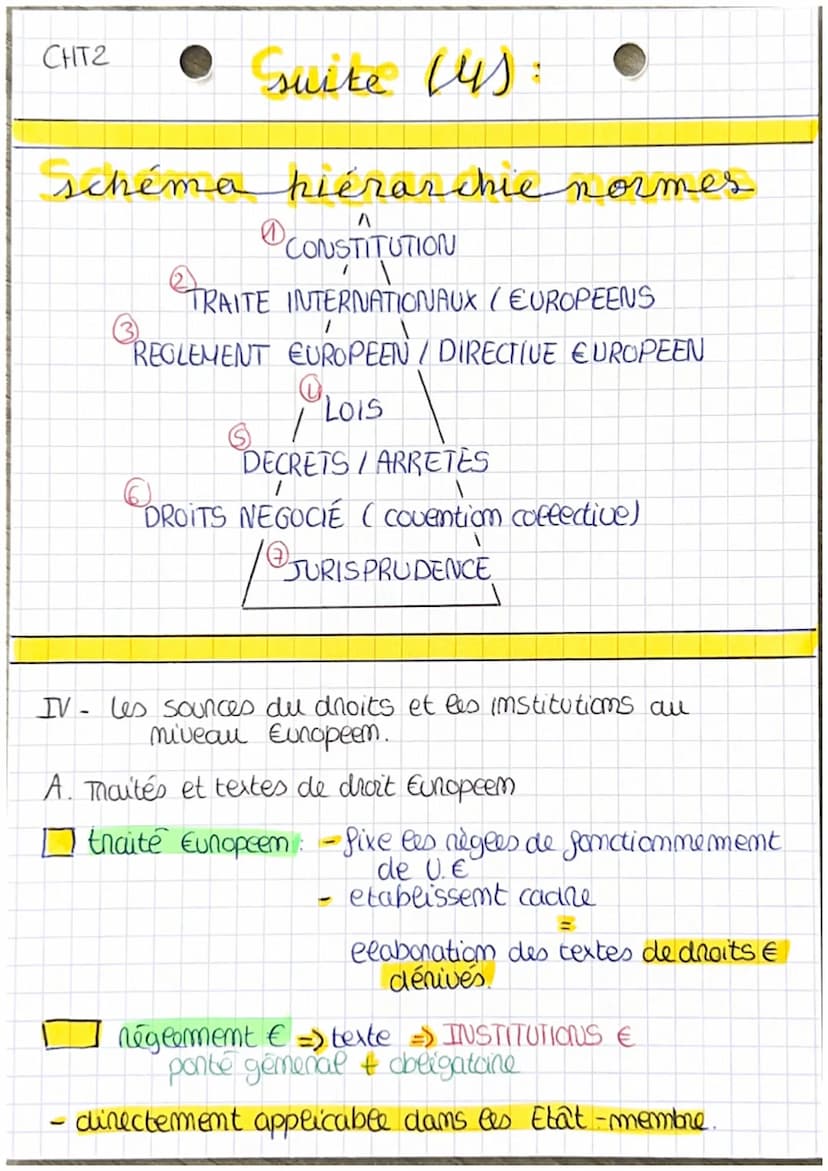 CHT2
Suite (4) :
Schéma hiérarchie normes
① CONSTITUTION
② TRAITE INTERNATIONAUX / €UROPEENS
③ REGLEMENT €UROPEEN / DIRECTIVE €UROPEEN
④ LOIS
⑤ DECRETS / ARRETÈS
⑥ DROITS NEGOCIÉ ( covention collective)
⑦ JURISPRUDENCE
IV - les sources du droits et les institutions au
niveau €uropeen.
A. Traités et textes de droit €uropeen
traité €uropeen : - fixe les règles de fonctionnement
de U.€
- etablissent cadre
=
elaboration des textes de droits €
dérivés.
réglement € => texte => INSTITUTIONS €
porté géneral + obligatoire
- directement applicable dans les Etât-membre.